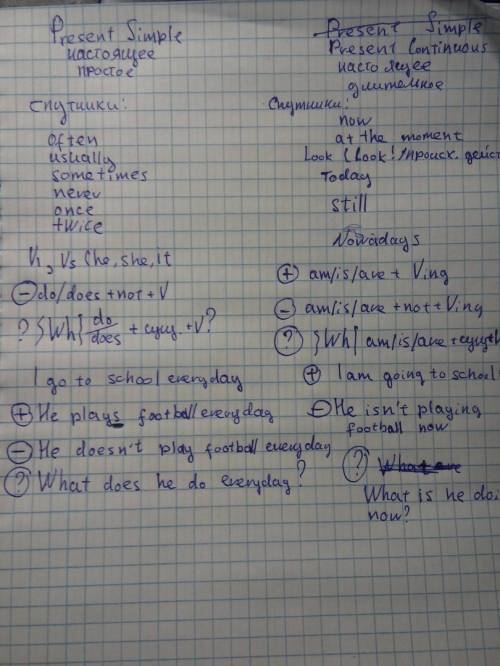 Present Simple
настоящее
простое
спутники:
often
usually
sometimes
never
once
twice
V, Vs (he, she, it
- do/does + not + V
? {Wh} do/does + сущ + V?
I go to school everyday
+ He plays football everyday
- He doesn't play football everyday
? What does he do everyday?
Present Simple
Present Continuous
настоящее
длительное
Спутники:
now
at the moment
Look (Look!
Today
still
Nowadays
+ am/is/are + Ving
- am/is/are + not + Ving
? {Wh} am/is/are
+ I am going to school
- He isn't playing
football now
? What are
What is he
now?